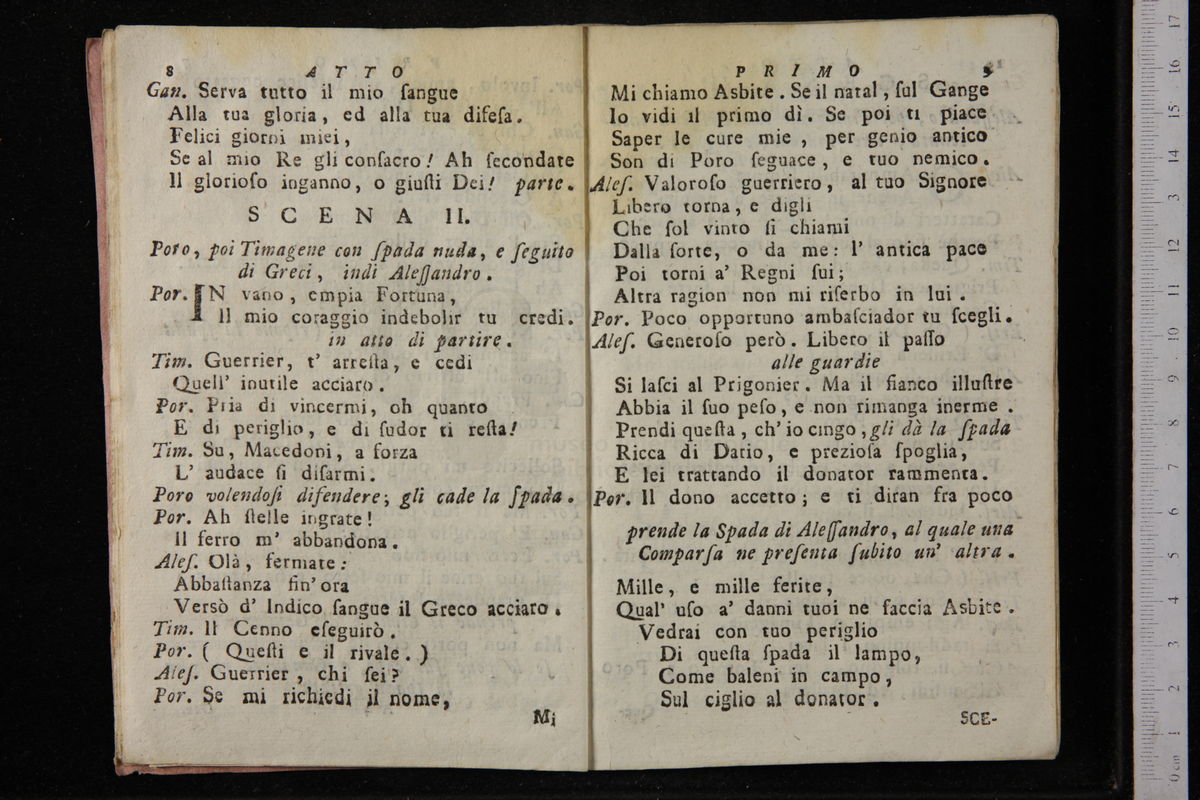 8 ATTO
Gan. Serva tutto il mio ſangue
Alla tua gloria, ed alla tua difeſa.
Felici giorni miei,
Se al mio Re gli conſacro! Ah ſecondate
Il glorioſo inganno, o giuſti Dei! parte.
SCENA II.
Poro, poi Timagene con ſpada nuda, e ſeguito
di Greci, indi Aleſſandro.
Por. IN vano, empia Fortuna,
Il mio coraggio indebolir tu credi.
in atto di partire.
Tim. Guerrier, t' arreſta, e cedi
Quell' inutile acciaro.
Por. Pria di vincermi, oh quanto
E di periglio, e di ſudor ti reſta!
Tim. Su, Macedoni, a forza
L' audace ſi diſarmi.
Poro volendoſi difendere; gli cade la ſpada.
Por. Ah ſtelle ingrate!
Il ferro m' abbandona.
Aleſ. Olà, fermate:
Abbaſtanza fin' ora
Versò d' Indico ſangue il Greco acciaro.
Tim. Il Cenno eſeguirò.
Por. ( Queſti e il rivale. )
Aleſ. Guerrier, chi ſei?
Por. Se mi richiedi il nome,
Mi
PRIMO 9
Mi chiamo Asbite. Se il natal, ſul Gange
Io vidi il primo dì. Se poi ti piace
Saper le cure mie, per genio antico
Son di Poro ſeguace, e tuo nemico.
Aleſ. Valoroſo guerriero, al tuo Signore
Libero torna, e digli
Che ſol vinto ſi chiami
Dalla ſorte, o da me: l' antica pace
Poi torni a' Regni ſui;
Altra ragion non mi riſerbo in lui.
Por. Poco opportuno ambaſciador tu ſcegli.
Aleſ. Generoſo però. Libero il paſſo
alle guardie
Si laſci al Prigonier. Ma il fianco illuſtre
Abbia il ſuo peſo, e non rimanga inerme.
Prendi queſta, ch' io cingo, gli dà la ſpada
Ricca di Dario, e prezioſa ſpoglia,
E lei trattando il donator rammenta.
Por. Il dono accetto; e ti diran fra poco
prende la Spada di Aleſſandro, al quale una
Comparſa ne preſenta ſubito un' altra.
Mille, e mille ferite,
Qual' uſo a' danni tuoi ne faccia Asbite.
Vedrai con tuo periglio
Di queſta ſpada il lampo,
Come baleni in campo,
Sul ciglio al donator.
SCE-
0 cm 1 2 3 4 5 6 7 8 9 10 11 12 13 14 15 16 17